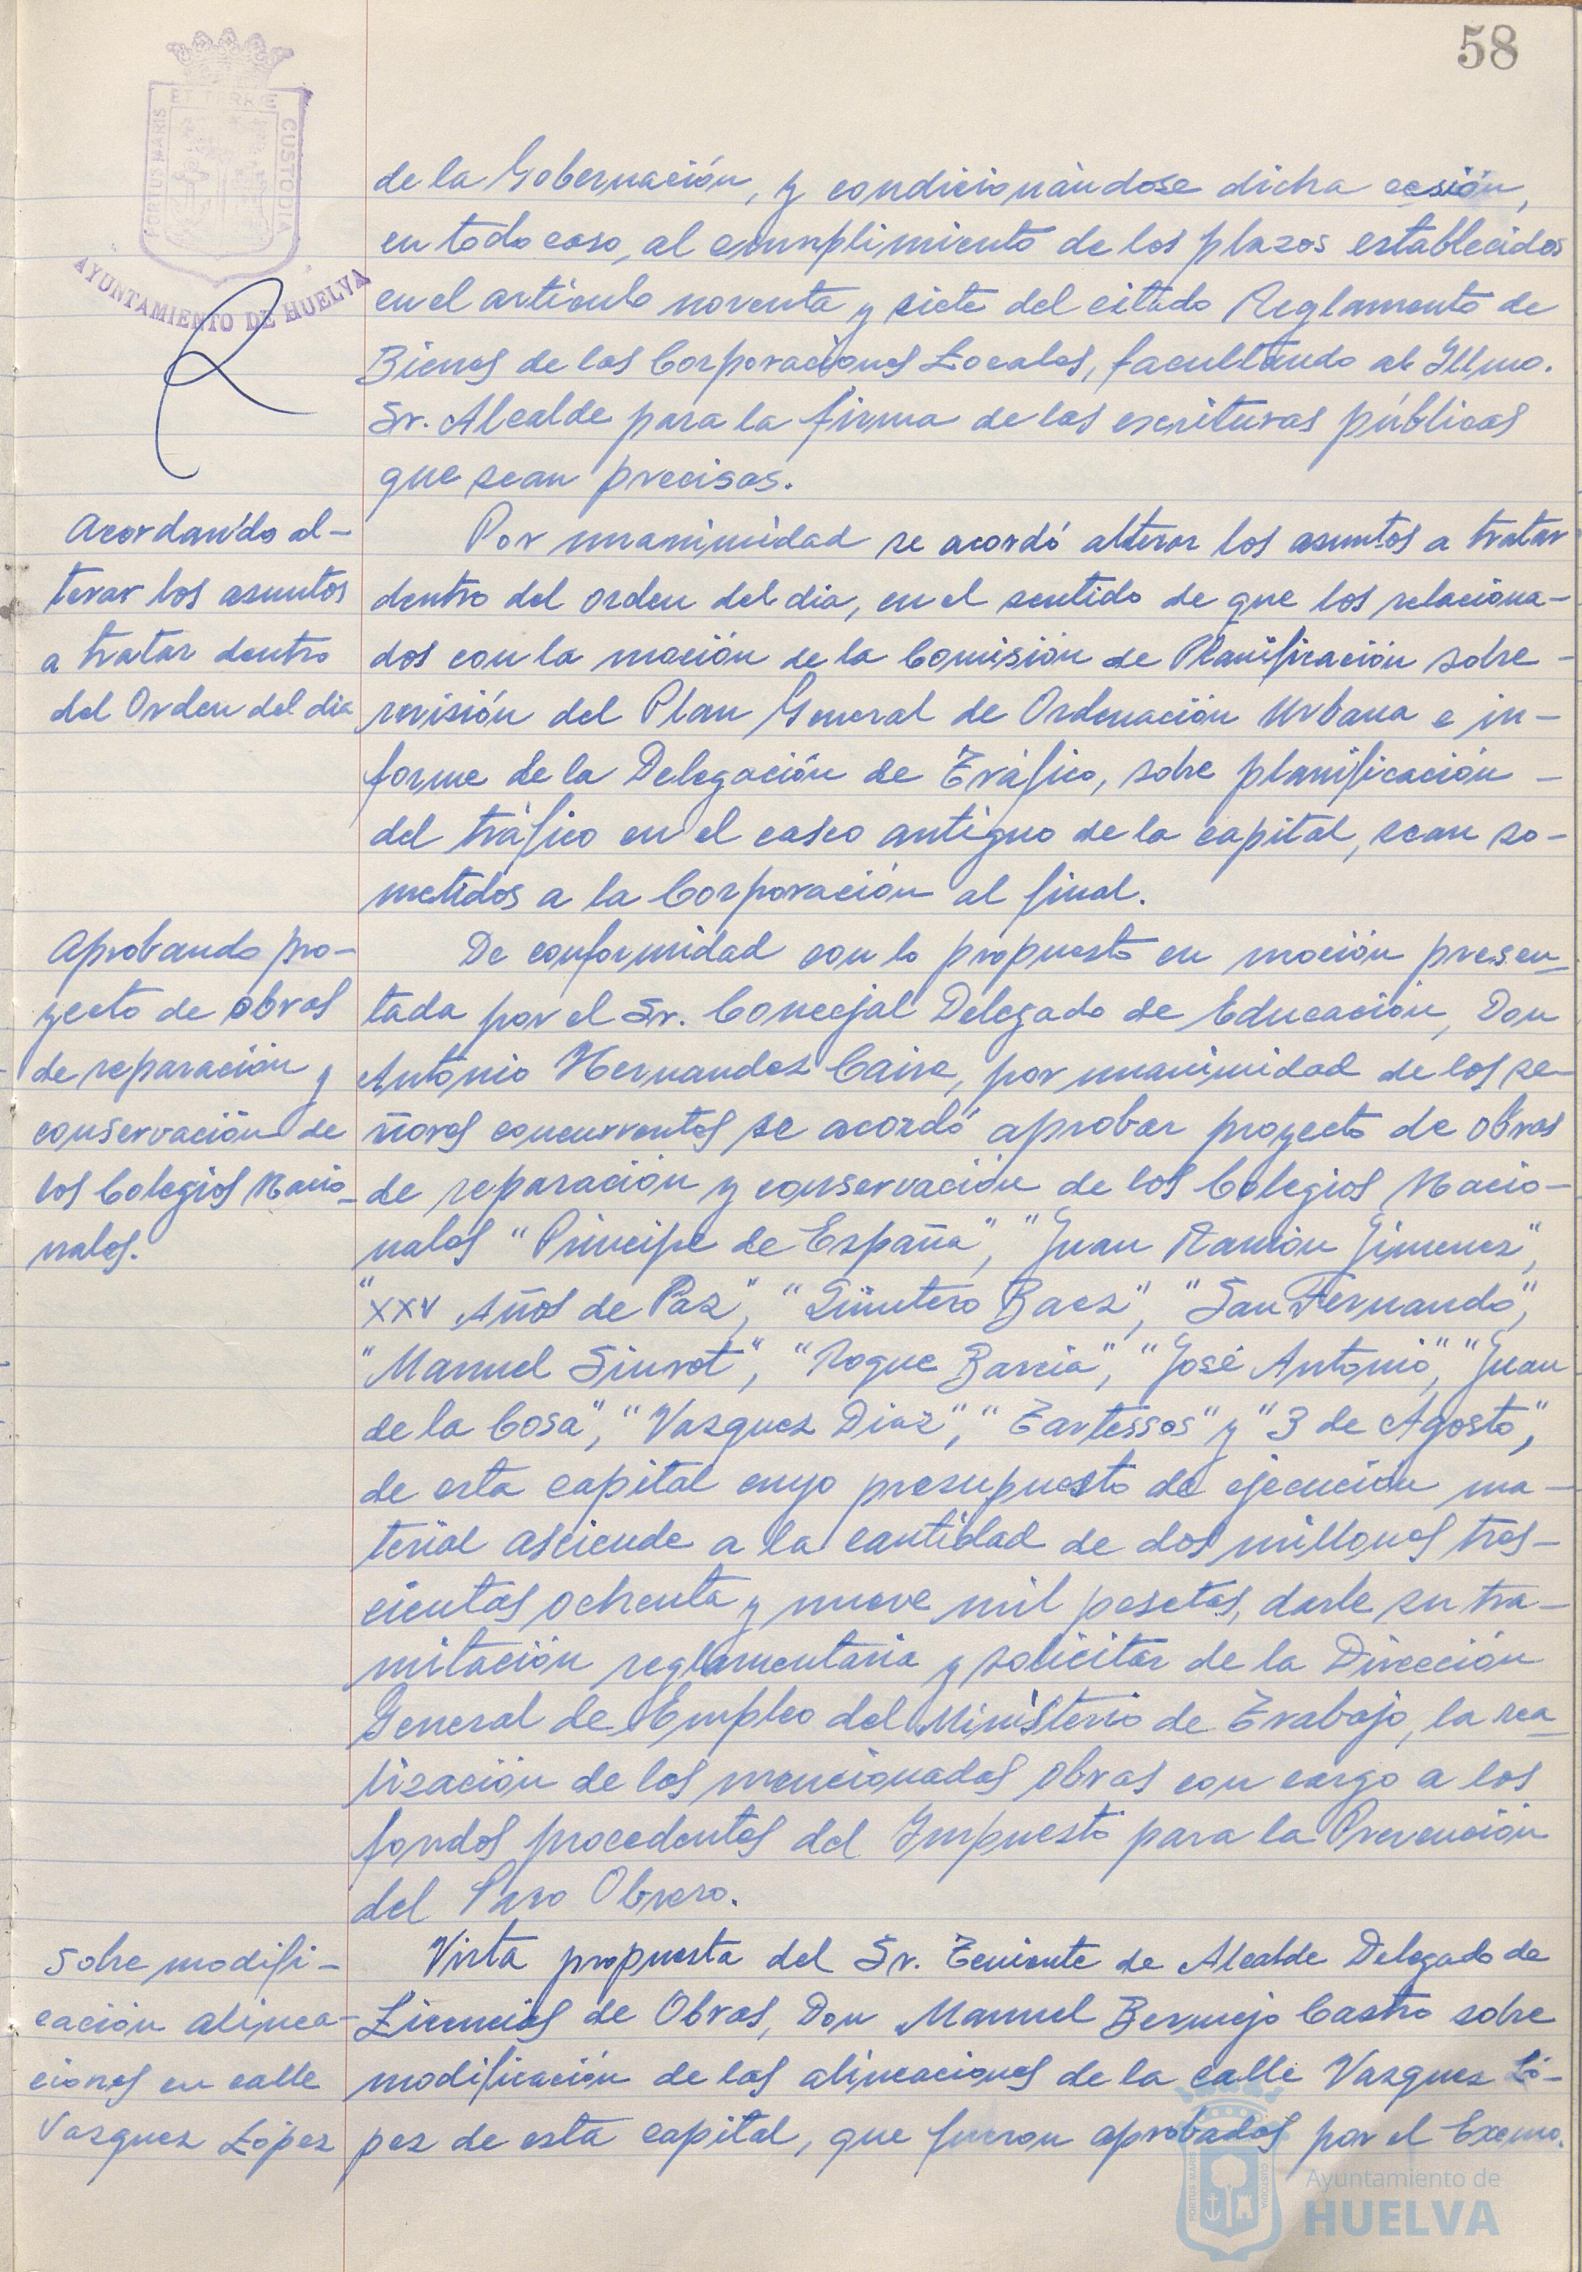 58
ET TERRE
PORTUS MARIS
CUSTODIA
AYUNTAMIENTO DE HUELVA
de la Gobernación, y condicionándose dicha cesión,
en todo caso, al cumplimiento de los plazos establecidos
en el artículo noventa y siete del citado Reglamento de
Bienes de las Corporaciones Locales, facultando al Illmo.
Sr. Alcalde para la firma de las escrituras públicas
que sean precisas.
Acordando al-
terar los asuntos
a tratar dentro
del Orden del dia
Por unanimidad se acordó alterar los asuntos a tratar
dentro del orden del dia, en el sentido de que los relaciona-
dos con la moción de la Comisión de Planificación sobre -
revisión del Plan General de Ordenación Urbana e in-
forme de la Delegación de Tráfico, sobre planificación -
del tráfico en el casco antiguo de la capital, sean so-
metidos a la Corporación al final.
Aprobando pro-
yecto de obras
de reparación y
conservación de
los Colegios Nacio-
nales.
De conformidad con lo propuesto en moción presen-
tada por el Sr. Concejal Delegado de Educación, Don
Antonio Hernandez Caire, por unanimidad de los se-
ñores concurrentes se acordó aprobar proyecto de obras
de reparación y conservación de los Colegios Nacio-
nales "Principe de España", "Juan Ramón Jimenez",
"XXV Años de Paz", "Quintero Baez", "San Fernando",
"Manuel Siurot", "Roque Barcia", "José Antonio", "Juan
de la Cosa", "Vazquez Diaz", "Tartessos" y "3 de Agosto",
de esta capital cuyo presupuesto de ejecución ma-
terial asciende a la cantidad de dos millones tres-
cientas ochenta y nueve mil pesetas, darle su tra-
mitación reglamentaria y solicitar de la Dirección
General de Empleo del Ministerio de Trabajo, la rea-
lización de las mencionadas obras con cargo a los
fondos procedentes del Impuesto para la Prevención
del Paro Obrero.
Sobre modifi-
cación alinea-
ciones en calle
Vazquez López
Vista propuesta del Sr. Teniente de Alcalde Delegado de
Licencias de Obras, Don Manuel Bermejo Castro sobre
modificación de las alineaciones de la calle Vazquez Ló-
pez de esta capital, que fueron aprobadas por el Excmo.
PORTUS MARIS
CUSTODIA
Ayuntamiento de
HUELVA